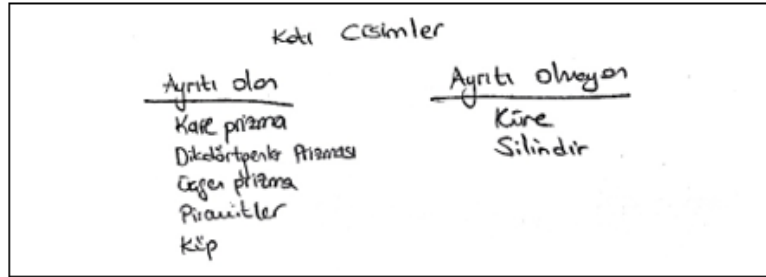 Katı Cisimler
Ayrıtı olan
Kare prizma
Dikdörtgenler Prizması
Üçgen prizma
Piramitler
Küp
Ayrıtı olmayan
Küre
Silindir